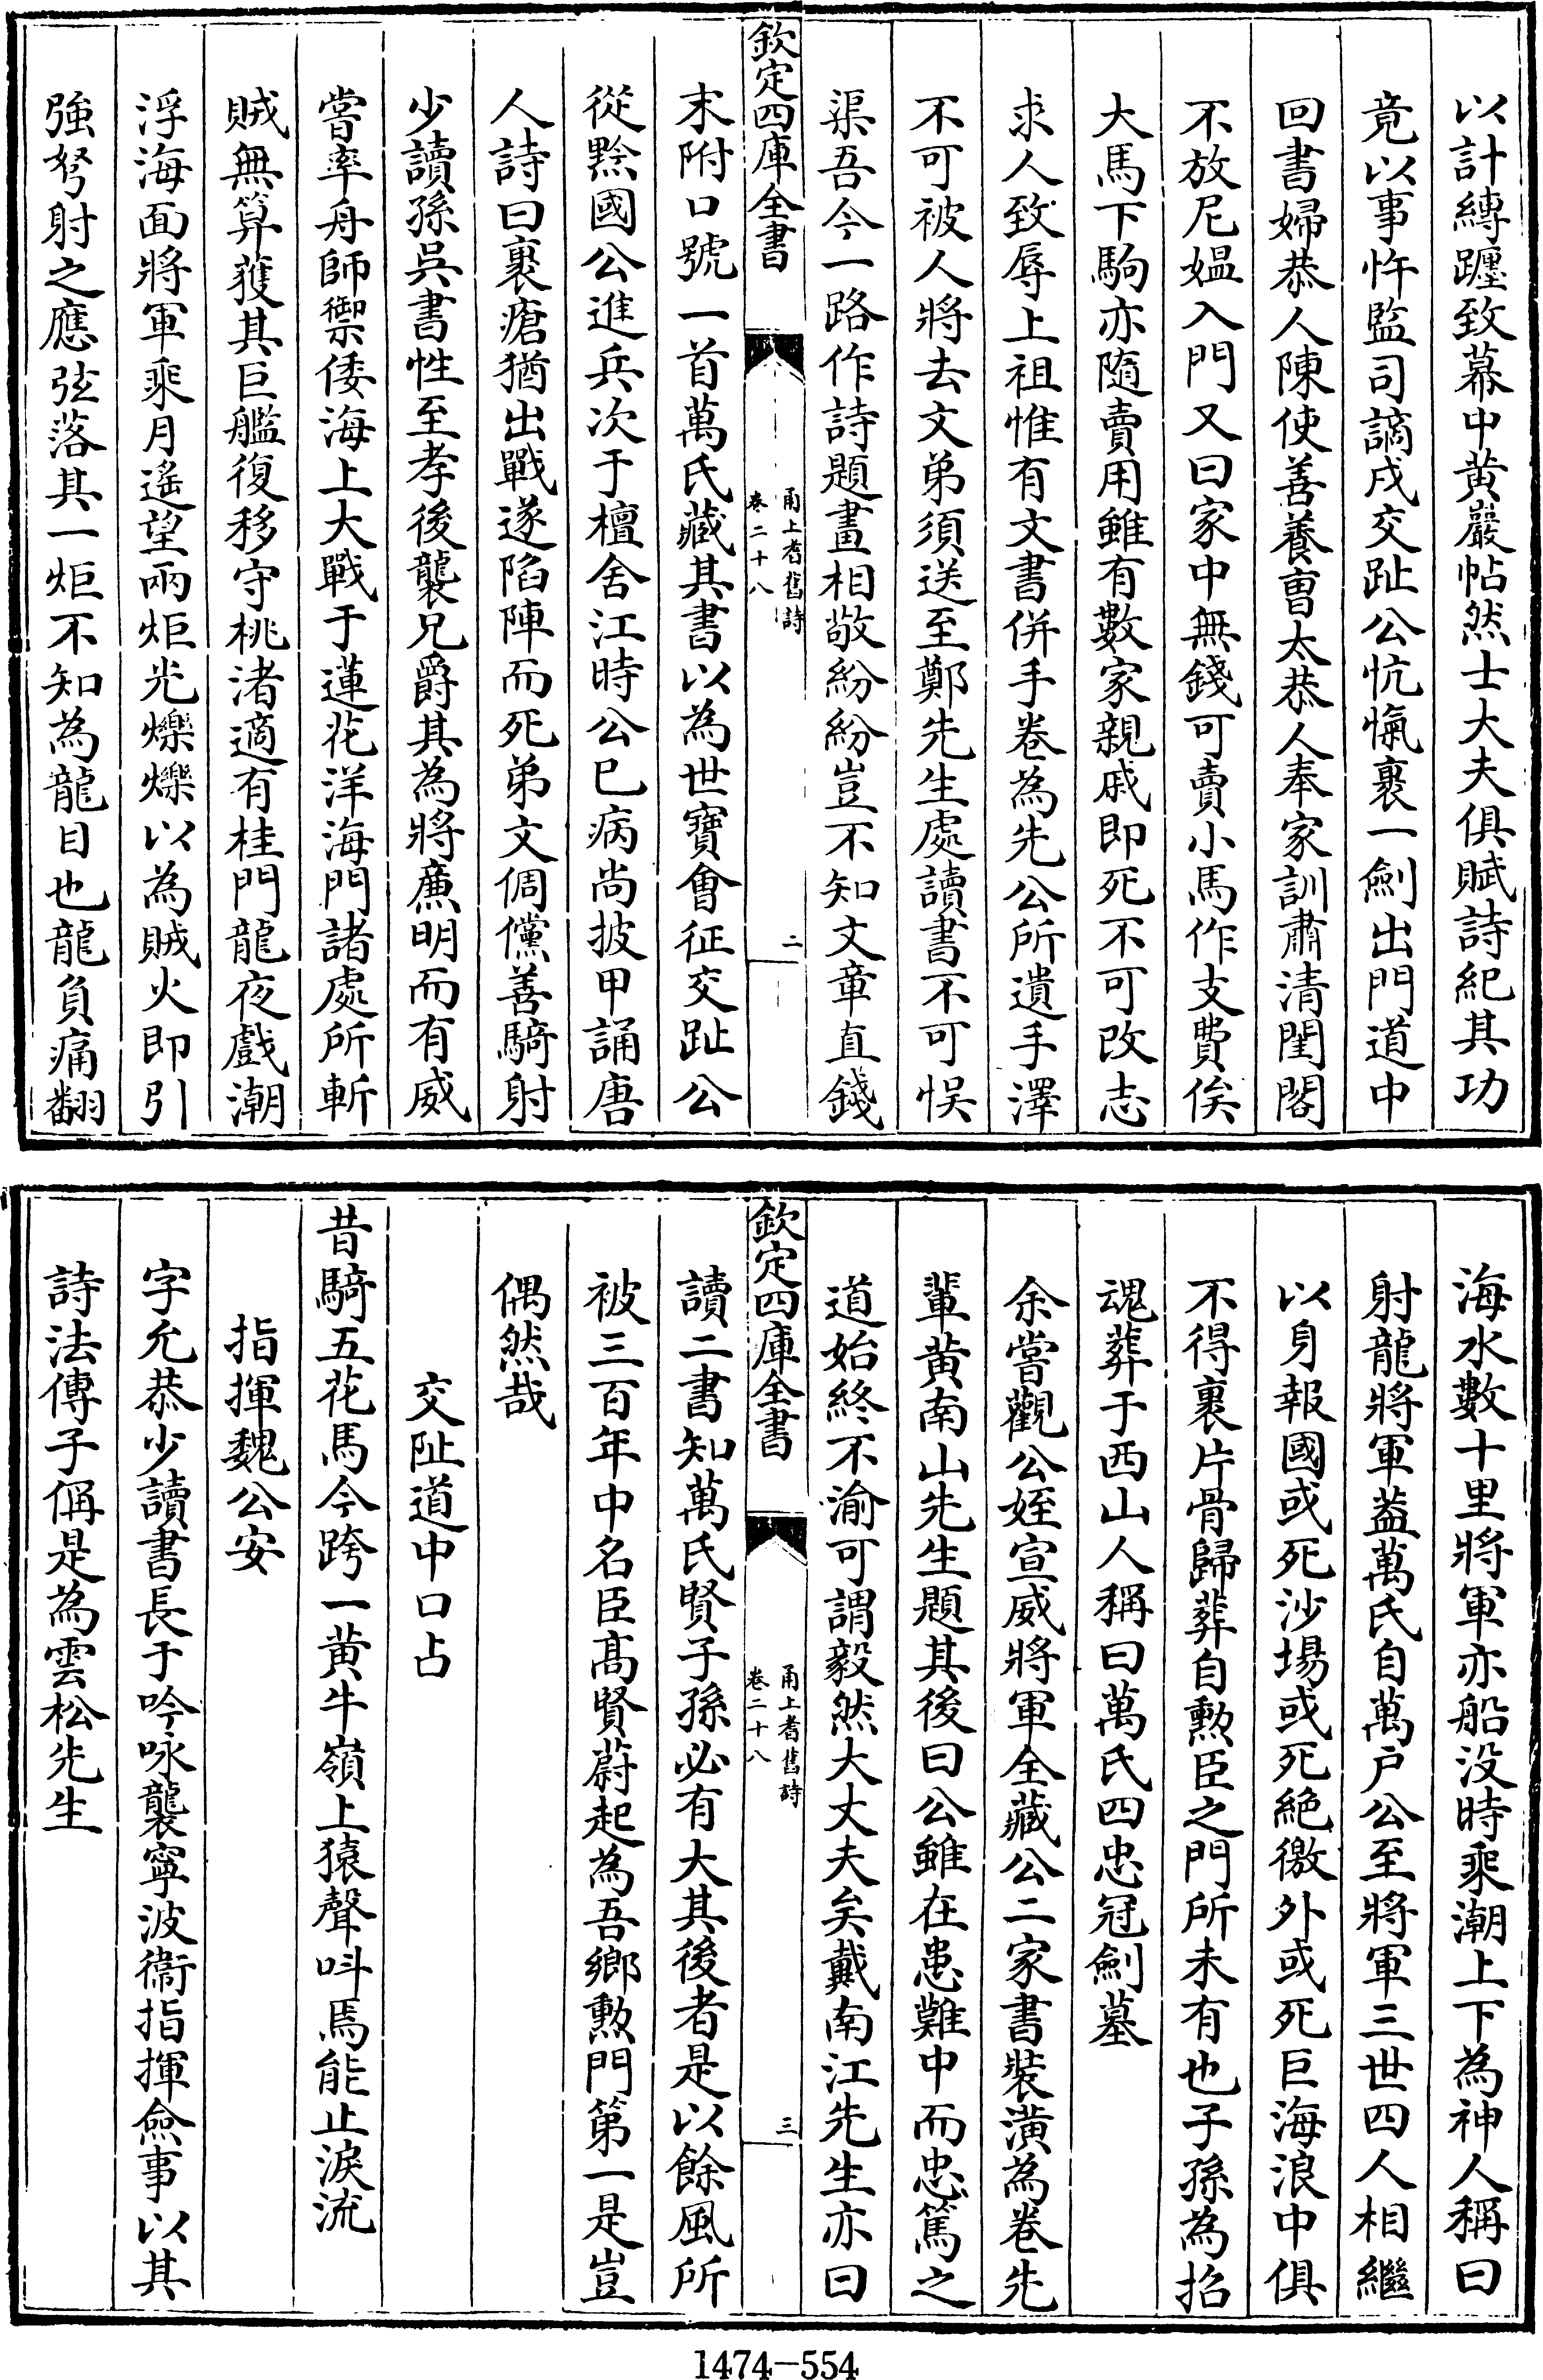 以計縳躔致幕中黄巖帖然士大夫俱賦詩紀其功
竟以事忤監司謫戍交趾公忼愾裹一劍出門道中
回書婦恭人陳使善養曹太恭人奉家訓肅清閨閣
不放尼媪入門又曰家中無錢可賣小馬作支費俟
大馬下駒亦隨賣用雖有數家親戚即死不可改志
求人致辱上祖惟有文書併手卷為先公所遺手澤
不可被人將去文弟須送至鄭先生處讀書不可悮
渠吾今一路作詩題畫相敬紛紛豈不知文章直錢
欽定四庫全書
甬上耆舊詩
卷二十八
二
末附口號一首萬氏藏其書以為世寶會征交趾公
從黔國公進兵次于檀舍江時公已病尚披甲誦唐
人詩曰裹瘡猶出戰遂陷陣而死弟文倜儻善騎射
少讀孫吳書性至孝後襲兄爵其為將㢘明而有威
嘗率舟師禦倭海上大戰于蓮花洋海門諸處所斬
賊無算獲其巨艦復移守桃渚適有桂門龍夜戲潮
浮海面將軍乘月遙望兩炬光爍爍以為賊火即引
強弩射之應弦落其一炬不知為龍目也龍負痛翻
海水數十里將軍亦船没時乘潮上下為神人稱曰
射龍將軍葢萬氏自萬戸公至將軍三世四人相繼
以身報國或死沙場或死絶徼外或死巨海浪中俱
不得裹片骨歸葬自勲臣之門所未有也子孫為招
魂葬于西山人稱曰萬氏四忠冠劍墓
余嘗觀公姪宣威將軍全藏公二家書裝潢為卷先
輩黄南山先生題其後曰公雖在患難中而忠篤之
道始終不渝可謂毅然大丈夫矣戴南江先生亦曰
欽定四庫全書
甬上耆舊詩
卷二十八
三
讀二書知萬氏賢子孫必有大其後者是以餘風所
被三百年中名臣髙賢蔚起為吾鄉勲門第一是豈
偶然哉
交阯道中口占
昔騎五花馬今跨一黄牛嶺上猿聲呌焉能止淚流
指揮魏公安
字允恭少讀書長于吟咏襲寧波衞指揮僉事以其
詩法傳子偁是為雲松先生
1474-554